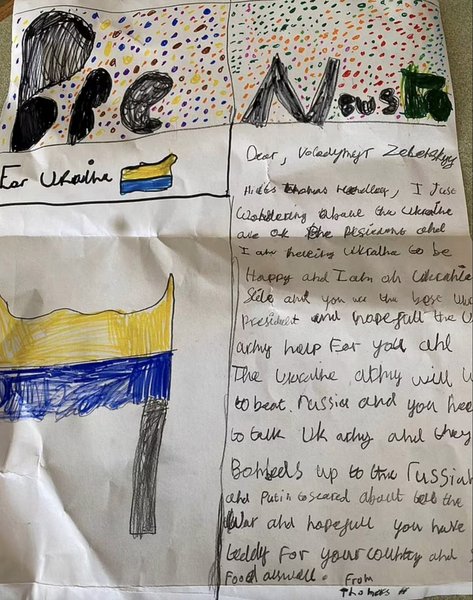 BrC News
For Ukraine
Dear, Volodymyr Zelenskyy
thomas I Just
Wondering about the Ukraine
are ok the Presidant and
I am Ukraine to be
Happy and I am on Ukraine
Side and you are the best
President and hopefull the
army help For you and
The Ukraine army will
to beat russia and you
to talk UK army and they
up to the russian
and Putin is scared about the
War and hopefull you have
teddy For your country and
Food aswell. From
Thomas H